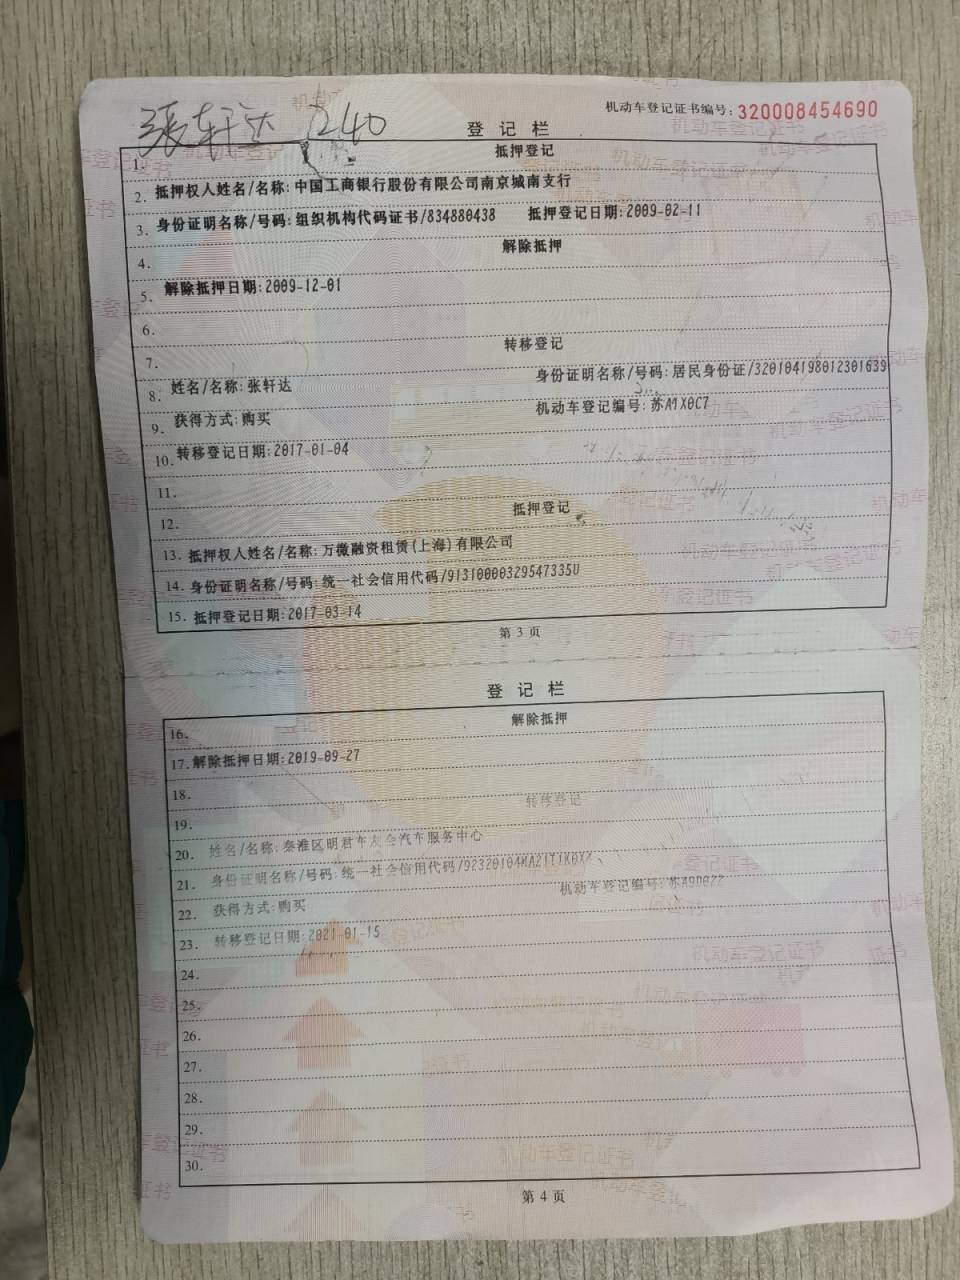 張轩达 240
机动车登记证书编号: 320008454690
登 记 栏
1. 抵押登记
2. 抵押权人姓名/名称:中国工商银行股份有限公司南京城南支行
3. 身份证明名称/号码:组织机构代码证书/834880438 抵押登记日期:2009-02-11
4. 解除抵押
5. 解除抵押日期:2009-12-01
6.
7. 转移登记
8. 姓名/名称:张轩达 身份证明名称/号码:居民身份证/320104198012301639
9. 获得方式:购买 机动车登记编号:苏A1X0C7
10. 转移登记日期:2017-01-04
11.
12. 抵押登记
13. 抵押权人姓名/名称:万微融资租赁(上海)有限公司
14. 身份证明名称/号码:统一社会信用代码/91310000329547335U
15. 抵押登记日期:2017-03-14
第 3 页
登 记 栏
16. 解除抵押
17. 解除抵押日期:2019-09-27
18.
19. 转移登记
20. 姓名/名称:秦淮区明君车友会汽车服务中心
21. 身份证明名称/号码:统一社会信用代码/
22. 获得方式:购买 机动车登记编号:
23. 转移登记日期:2021-01-15
24.
25.
26.
27.
28.
29.
30.
第 4 页